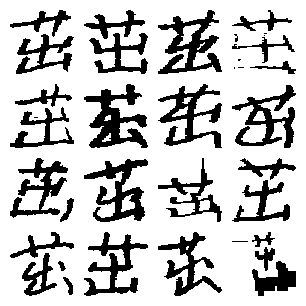 茁茁茁茁
茁茁茁茁
茁茁茁茁
茁茁茁茁